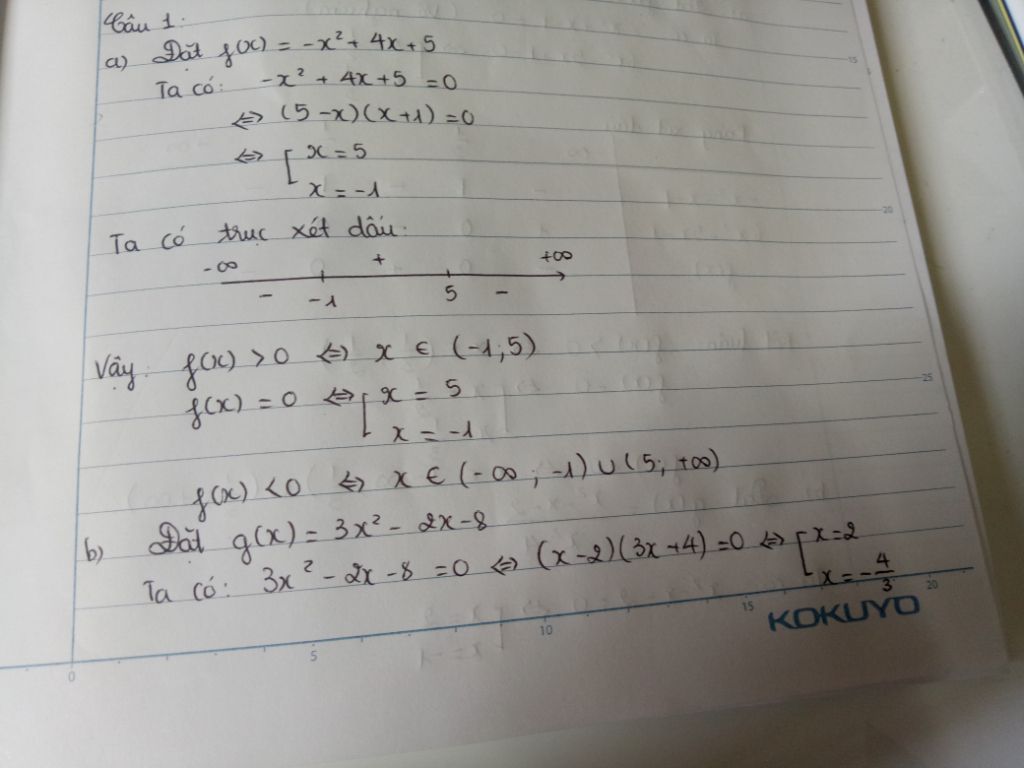 Câu 1:
a) Đặt f(x) = -x² + 4x + 5
Ta có: -x² + 4x + 5 = 0
⇔ (5 - x)(x + 1) = 0
⇔ [ x = 5
x = -1
Ta có trục xét dấu:
-∞ + +∞
- -1 5 -
Vậy: f(x) > 0 ⇔ x ∈ (-1; 5)
f(x) = 0 ⇔ [ x = 5
x = -1
f(x) < 0 ⇔ x ∈ (-∞; -1) ∪ (5; +∞)
b) Đặt g(x) = 3x² - 2x - 8
Ta có: 3x² - 2x - 8 = 0 ⇔ (x - 2)(3x + 4) = 0 ⇔ [ x = 2
x = -4/3
0 5 10 15 20
KOKUYO
15
20
25